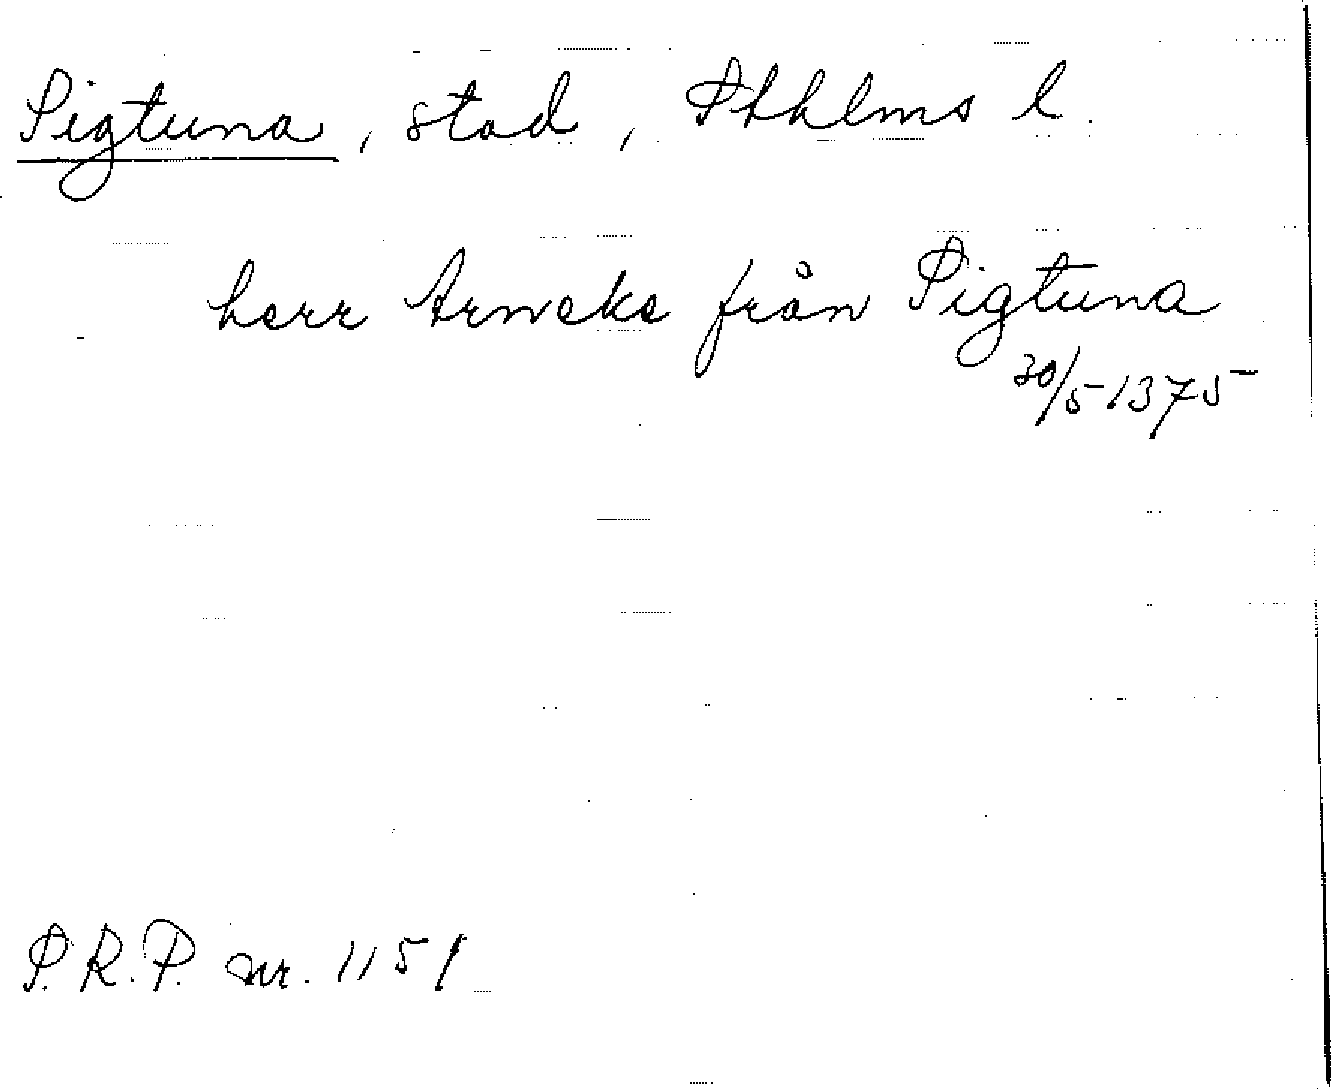 Sigtuna, stad, Sthlms l.
herr Arneke från Sigtuna
30/5 1375
S.R.P. nr. 1151